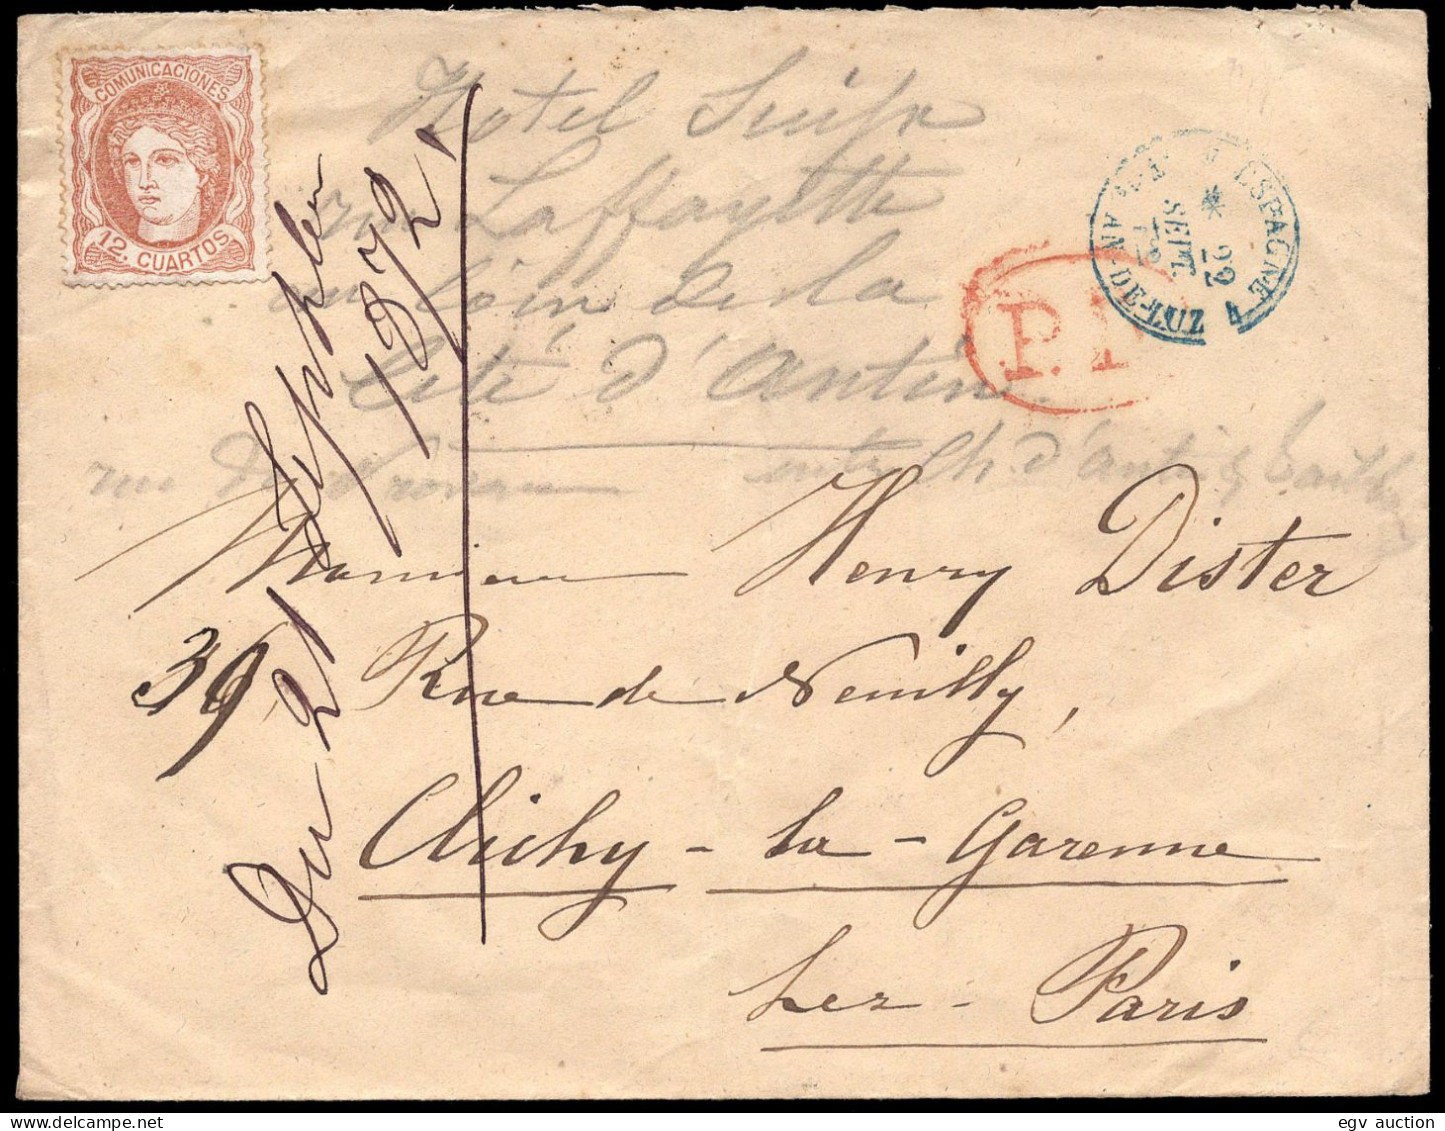 COMUNICACIONES
12. CUARTOS
Hotel Suisse
rue Laffayette
au loin de la
Cité d'Antin
rue de
Ch d'Antin
ESPAGNE
22
SEPT.
72
ST JEAN-DE-LUZ
4
P.D.
Du 21 September
1872
Monsieur Henry Dister
39 Rue de Neuilly,
Clichy-la-Garenne
hez-Paris
egv auction